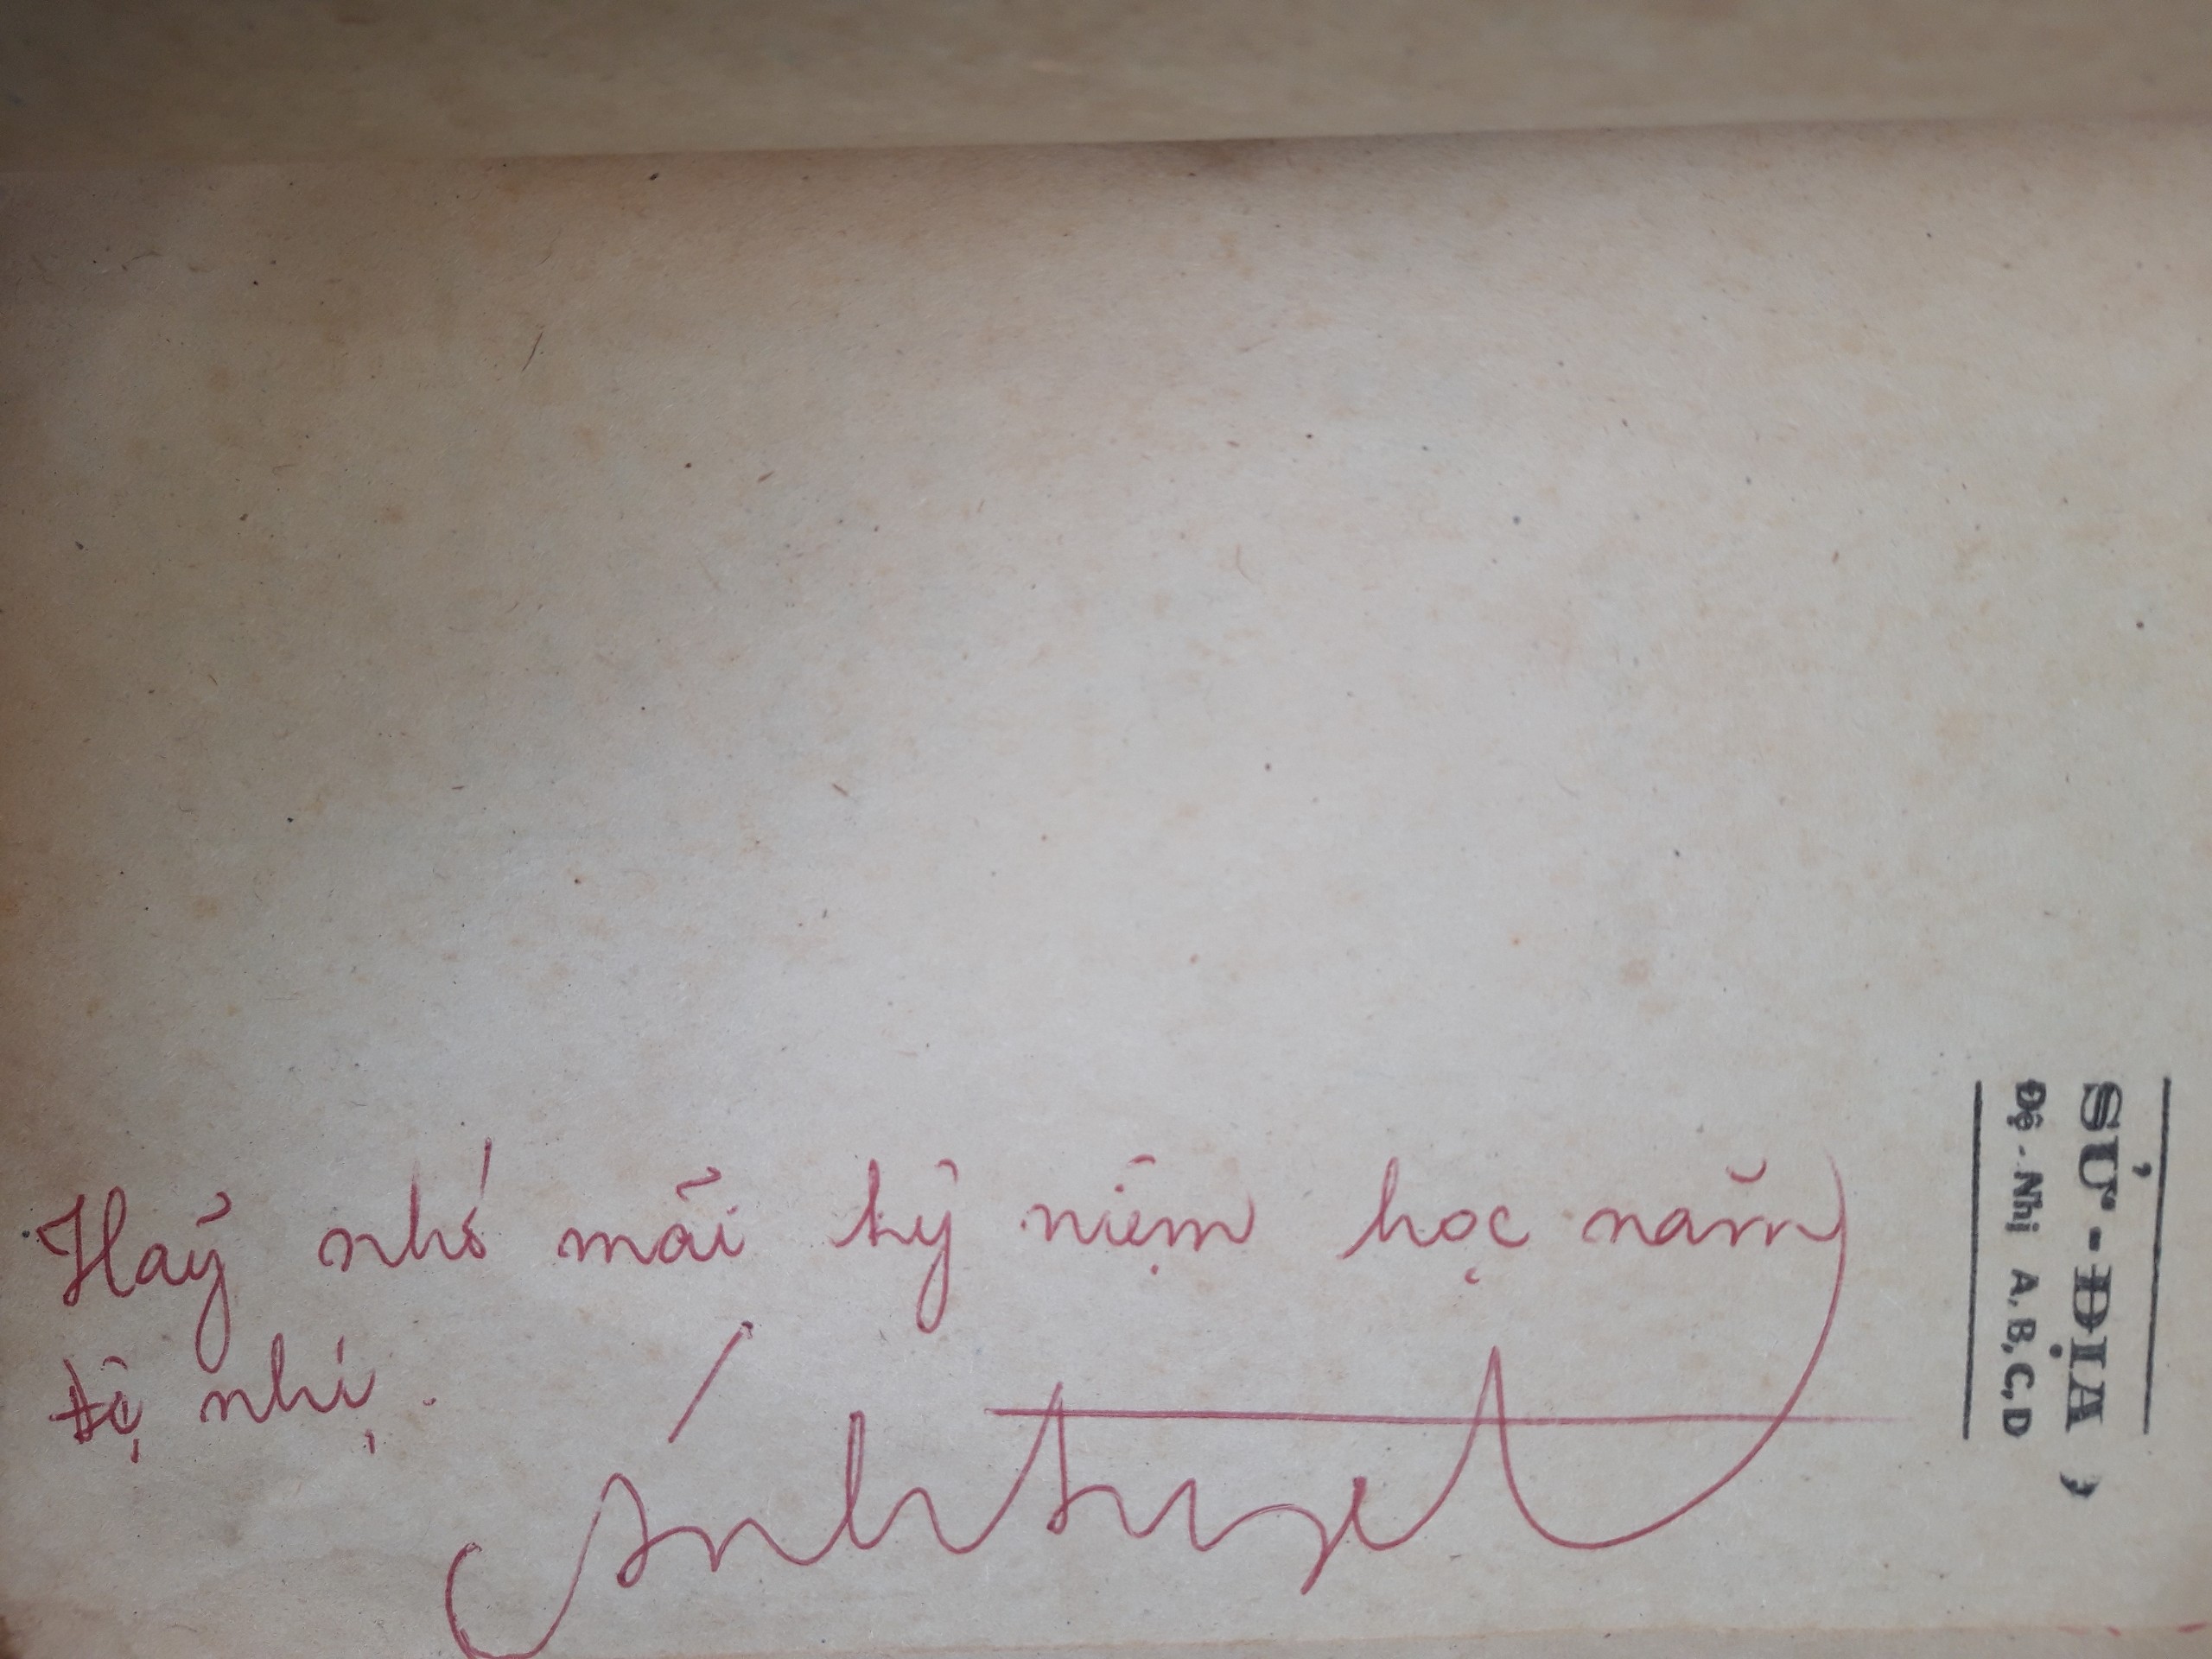 Hãy nhớ mãi kỷ niệm học năm
Đệ nhị.
Ánh tuyết
SỬ-ĐỊA
Đệ-Nhị A,B,C,D